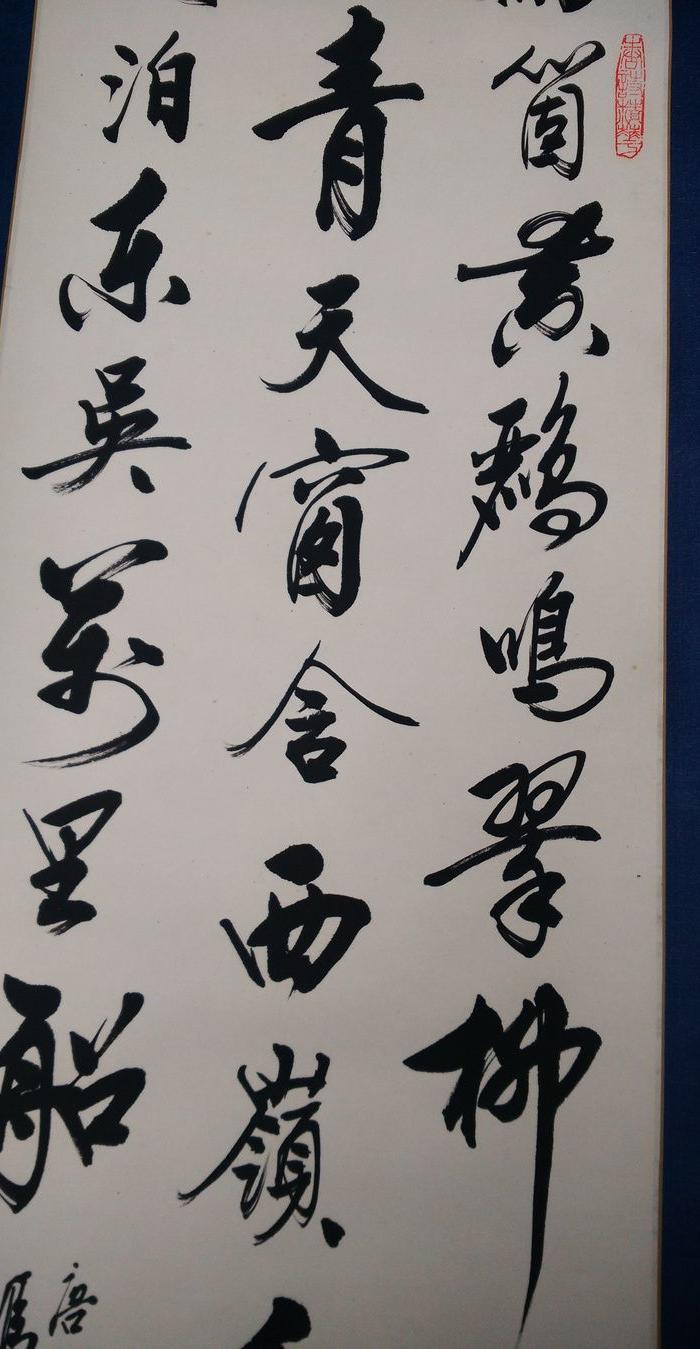 箇黄鸝鳴翠柳
青天窗含西嶺
泊東吳萬里船
唐